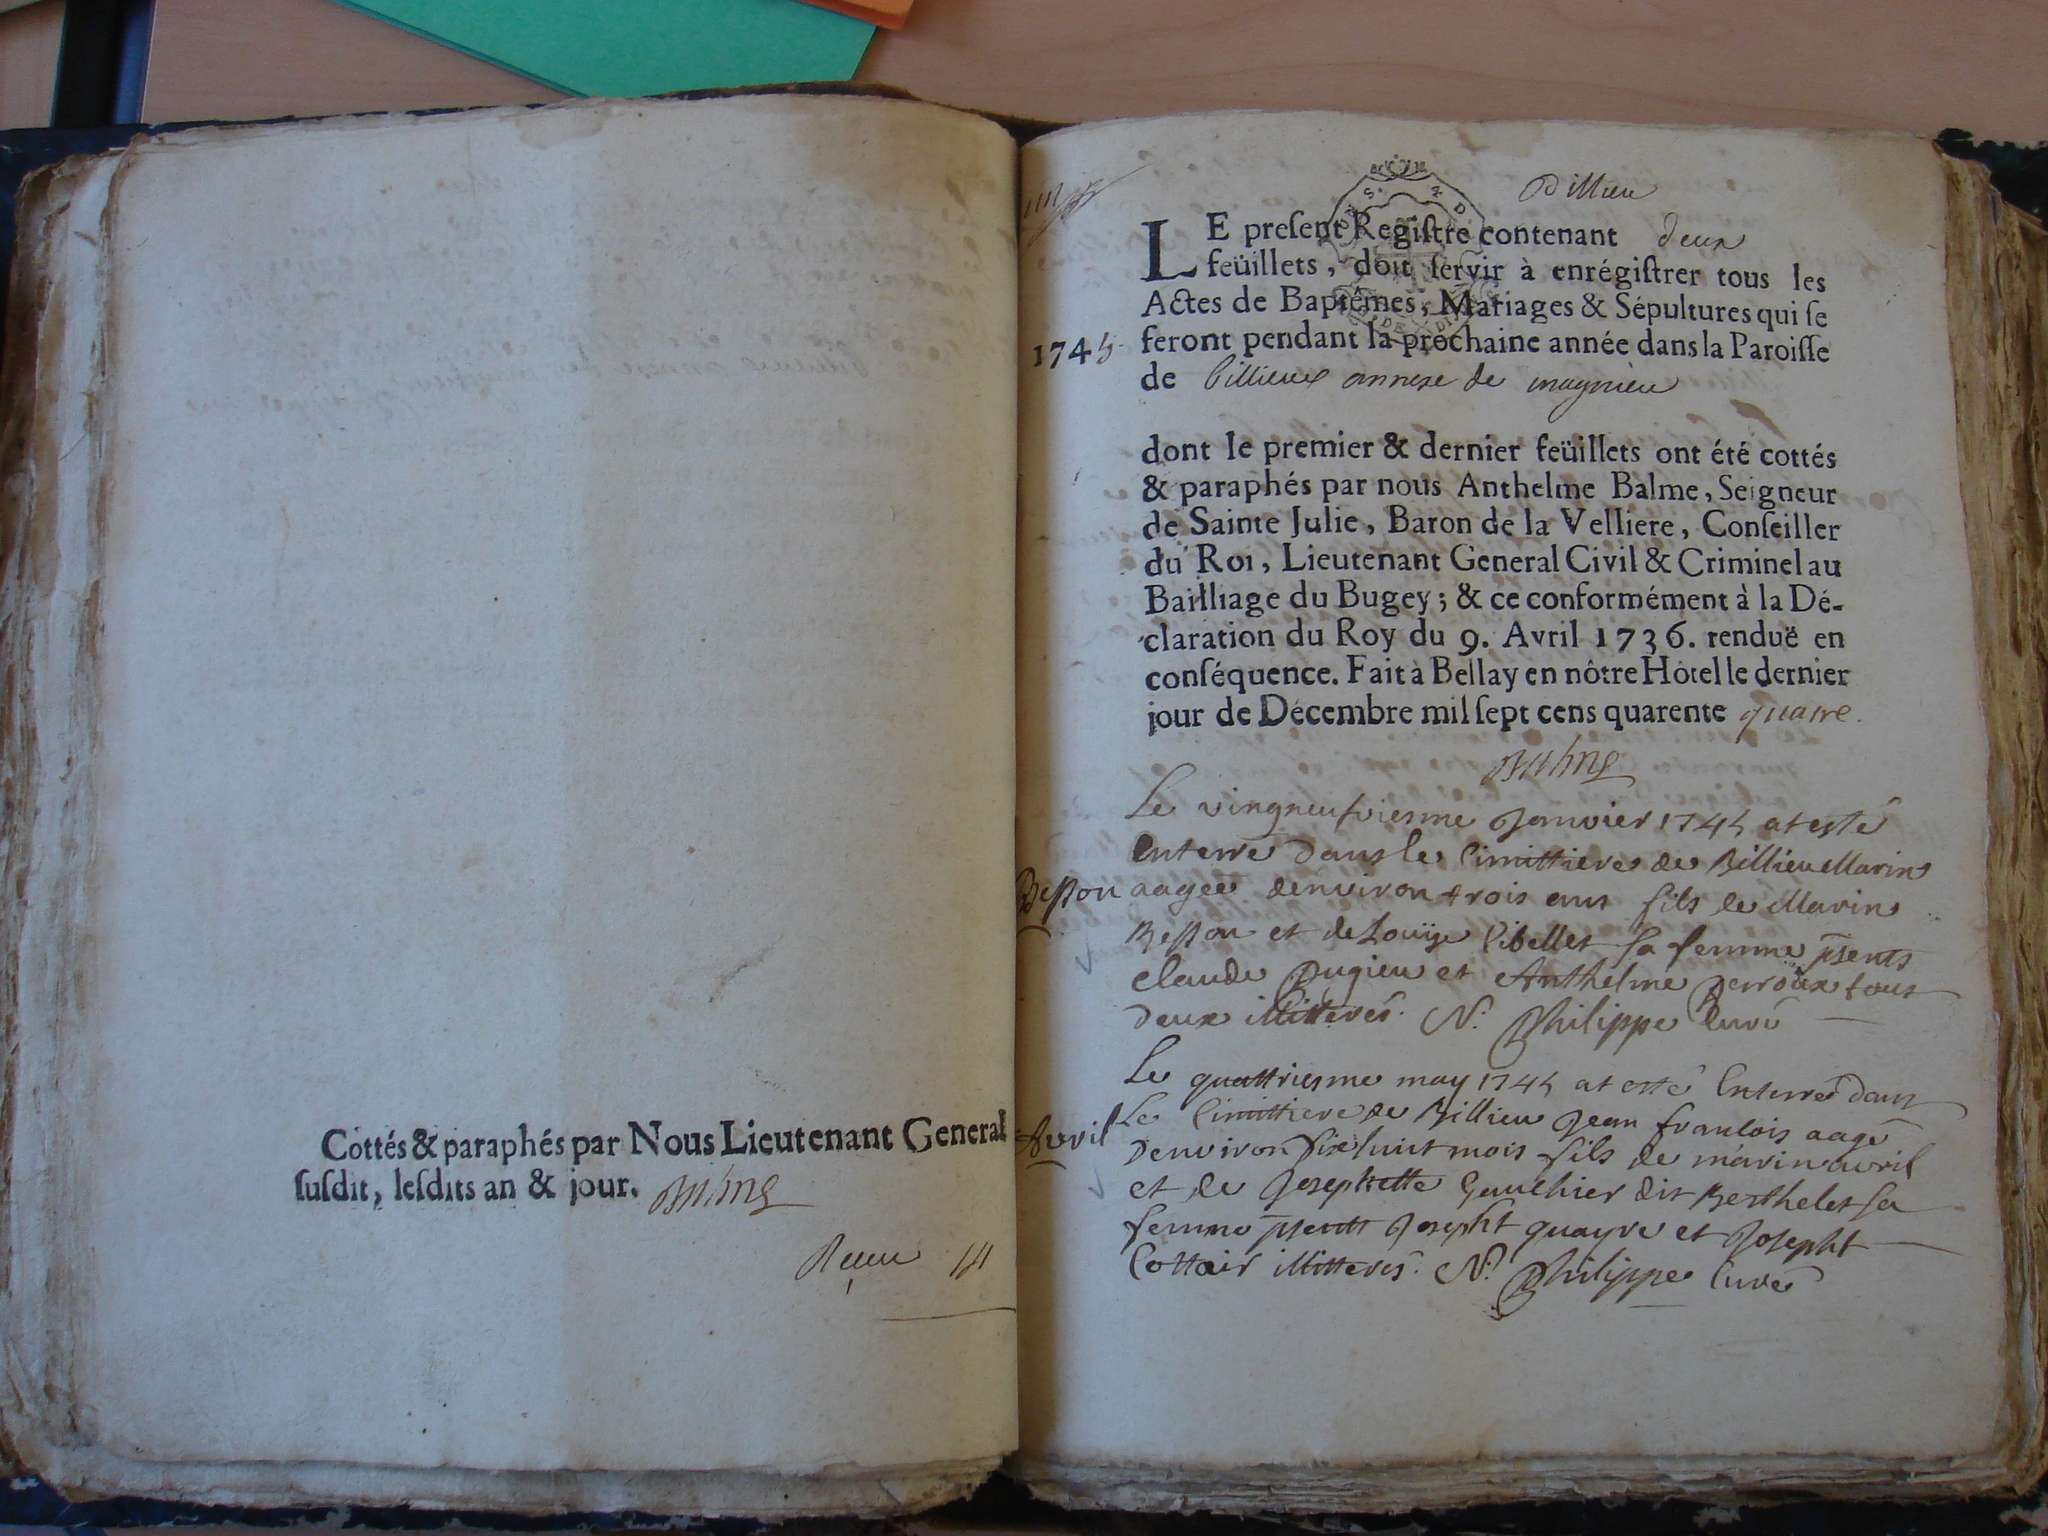 Cottés & paraphés par Nous Lieutenant General
susdit, lesdits an & jour. Balme
Billieu
LE preſent Regiſtre contenant deux
feüillets, doit ſervir à enrégiſtrer tous les
Actes de Baptêmes, Mariages & Sépultures qui ſe
1745 feront pendant la prochaine année dans la Paroiſſe
de billieux annexe de magnieu
dont le premier & dernier feüillets ont été cottés
& paraphés par nous Anthelme Balme, Seigneur
de Sainte Julie, Baron de la Velliere, Conſeiller
du Roi, Lieutenant General Civil & Criminel au
Bailliage du Bugey; & ce conformément à la Dé-
claration du Roy du 9. Avril 1736. renduë en
conſéquence. Fait à Bellay en nôtre Hôtel le dernier
jour de Décembre mil ſept cens quarente quatre.
Balme
Le vingneufviesme Janvier 1745 at esté
enterré dans le Cimittiere de Billieu Marin
Besson aagee denviron trois ans fils de Marin
Besson et de Louyse Cibellet sa femme pſents
Claude Pugieu et Anthelme Perroux tous
deux illitterés. N. Philippe Curé
Le quattriesme may 1745 at esté Enterré dans
Le Cimittiere de Billieu Jean francois aagé
Avril denviron dixhuit mois fils de marin avril
et de Josephette Gauthier dit Berthelet sa
femme pſents Josepht quayre et Josepht
Cottair illitterés. N. Philippe Curé